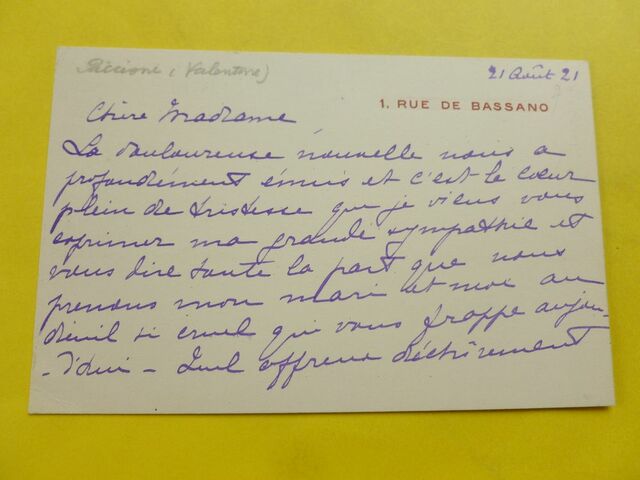 Piccioni (Valentine)
21 Août 21
1, RUE DE BASSANO
Chère Madame
La douloureuse nouvelle nous a
profondément émus et c'est le cœur
plein de tristesse que je viens vous
exprimer ma grande sympathie et
vous dire toute la part que nous
prenons mon mari et moi au
deuil si cruel qui vous frappe aujour-
-d'hui - Quel affreux déchirement